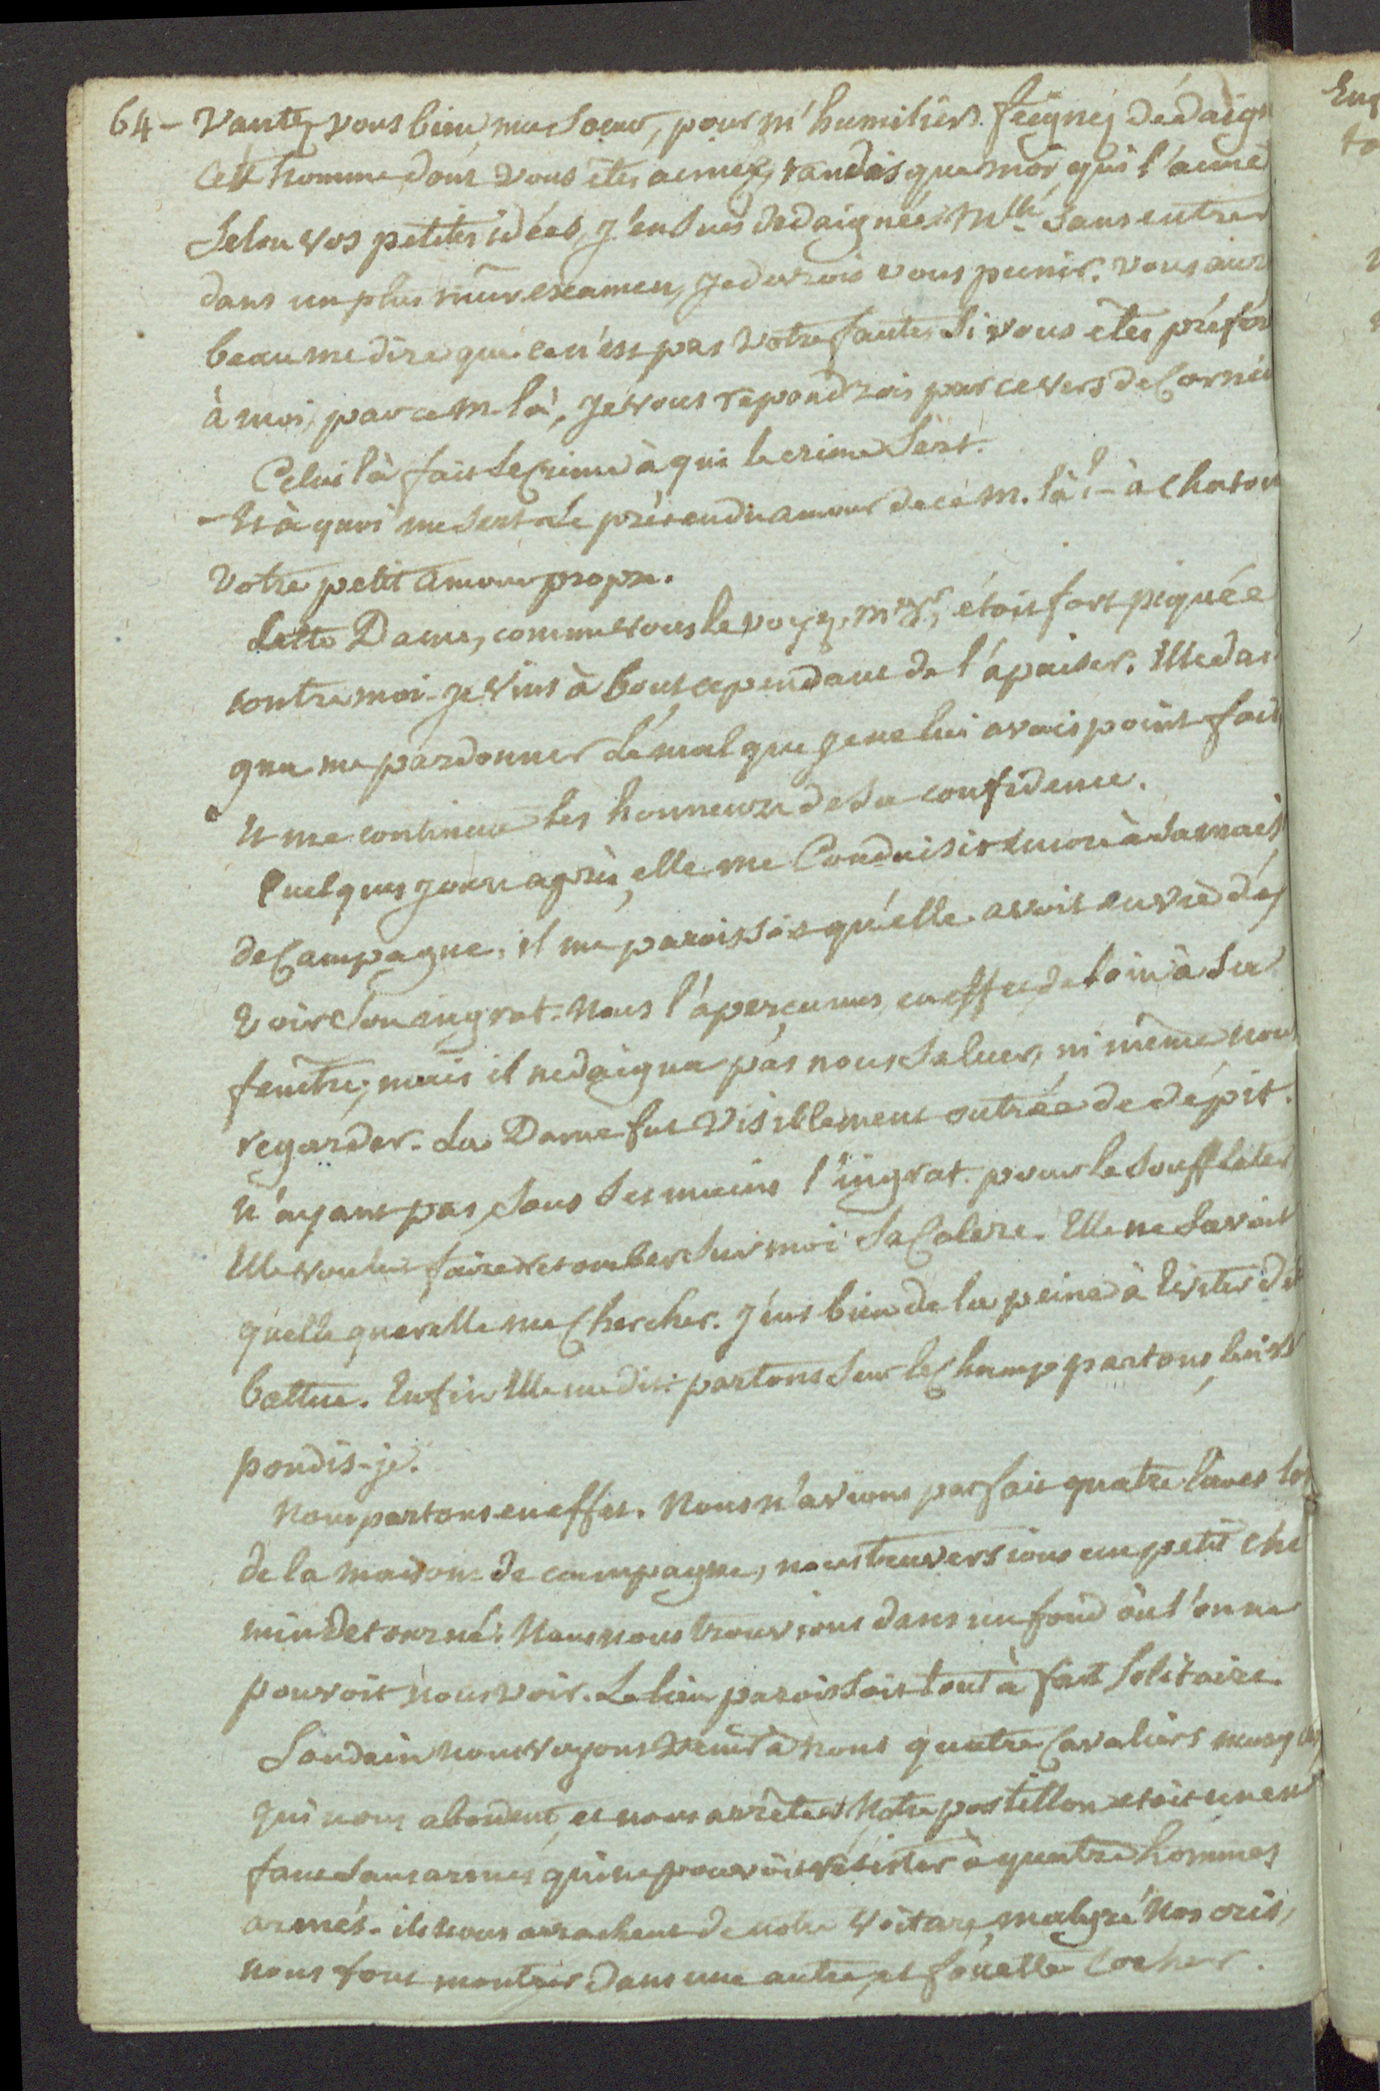 64 - Vantez vous bien, ma soeur, pour m'humilier. feignez dédaign
cet homme, dont vous êtes aimée, tandis que moi, qui l'aime
selon vos petites idées, j'en suis dédaignée. Mlle. sans entrer
dans un plus mûr examen, je devrois vous punir. vous aur
beau me dire que ce n'est pas votre faute, si vous êtes préfer
à moi, par ce M. là, je vous répondrois par ce vers de Cornei
Celui là fait le Crime à qui le crime sert.
- Et à quoi me sert le prétendu amour de ce M. là ! - à chatou
votre petit amour propre.
Cette Dame, comme vous le voyez, Mrs, étoit fort piquée
contre moi. je vins à bout cependant de l'apaiser. Elle dai
gna me pardonner le mal que je ne lui avois point fait
Et me continua les honneurs de sa confidence.
Quelques jours après, elle me Conduisit encore à sa mais
de Campagne. il me paroissoit qu'elle avoit envie d'y
voir son ingrat. nous l'aperçumes en effet de loin à sa
fenêtre; mais il ne daigna pas nous saluer, ni même nou
regarder. La Dame fut visiblement outrée de dépit.
N'ayant pas sous ses mains l'ingrat pour le souffleter
Elle voulut faire retomber sur moi sa Colere. Elle ne savoit
quelle querelle me Chercher. j'eus bien de la peine à Eviter d'ê
battue. Enfin Elle me dit: partons sur le Champ partons, lui ré
pondis-je.
Nous partons en effet. Nous n'avions pas fait quatre lieues lo
de la maison de campagne, nous traversions un petit che
min detourné. Nous nous trouvions dans un fond où l'on ne
pouvoit nous voir. Le lieu paroissoit tout à fait solitaire.
Soudain nous voyons venir à nous quatre Cavaliers masq
qui nous abordent, et nous arrêtent. Notre postillon etoit un en
fant sans armes qui ne pouvoit résister à quatre hommes
armés. ils nous arrachent de notre voiture, malgré nos cris,
nous font monter dans une autre, et fouette Cocher.